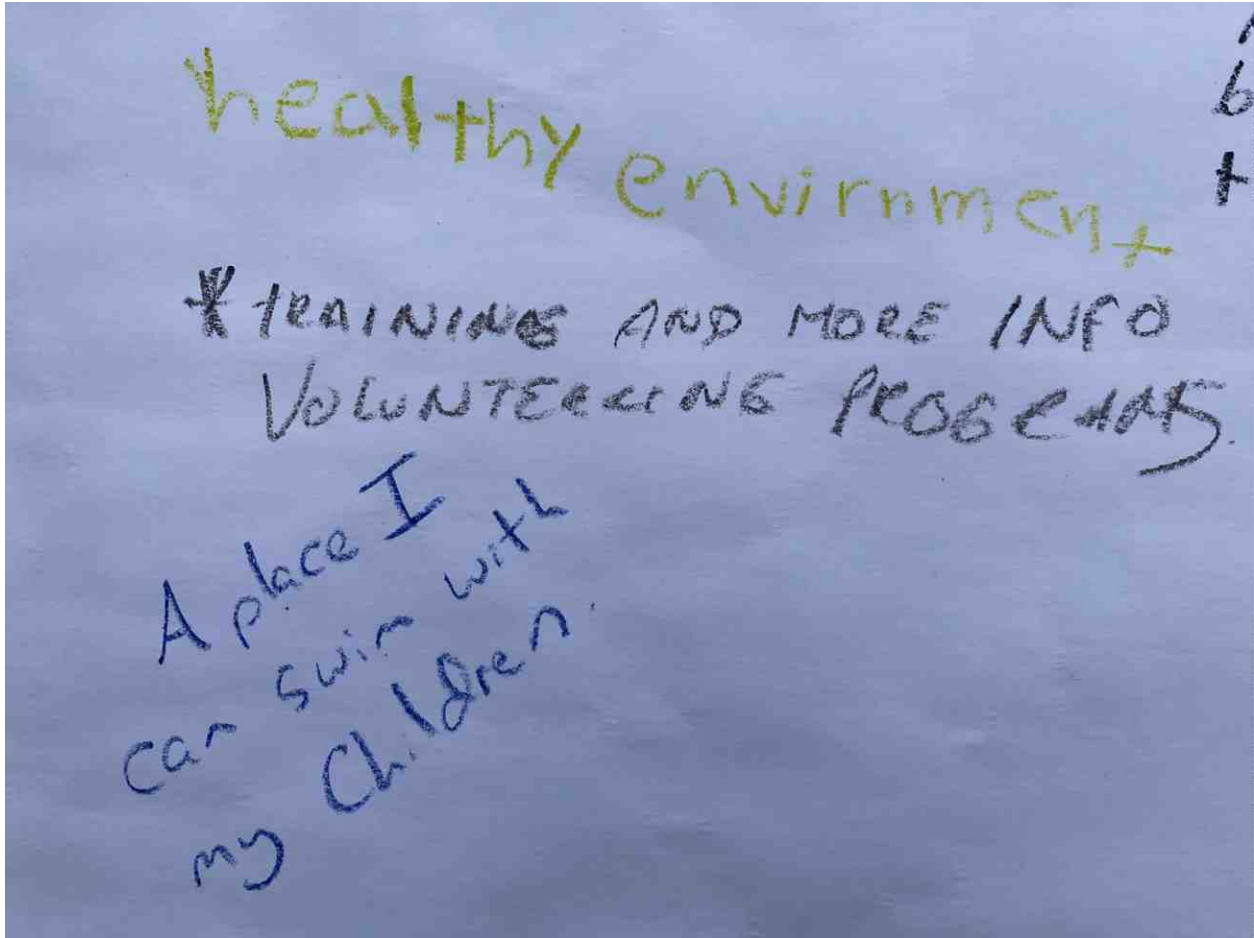 healthy envirnment
* TRAINING AND MORE INFO
VOLUNTEERING PROGRAMS.
A place I
can swim with
my Children.